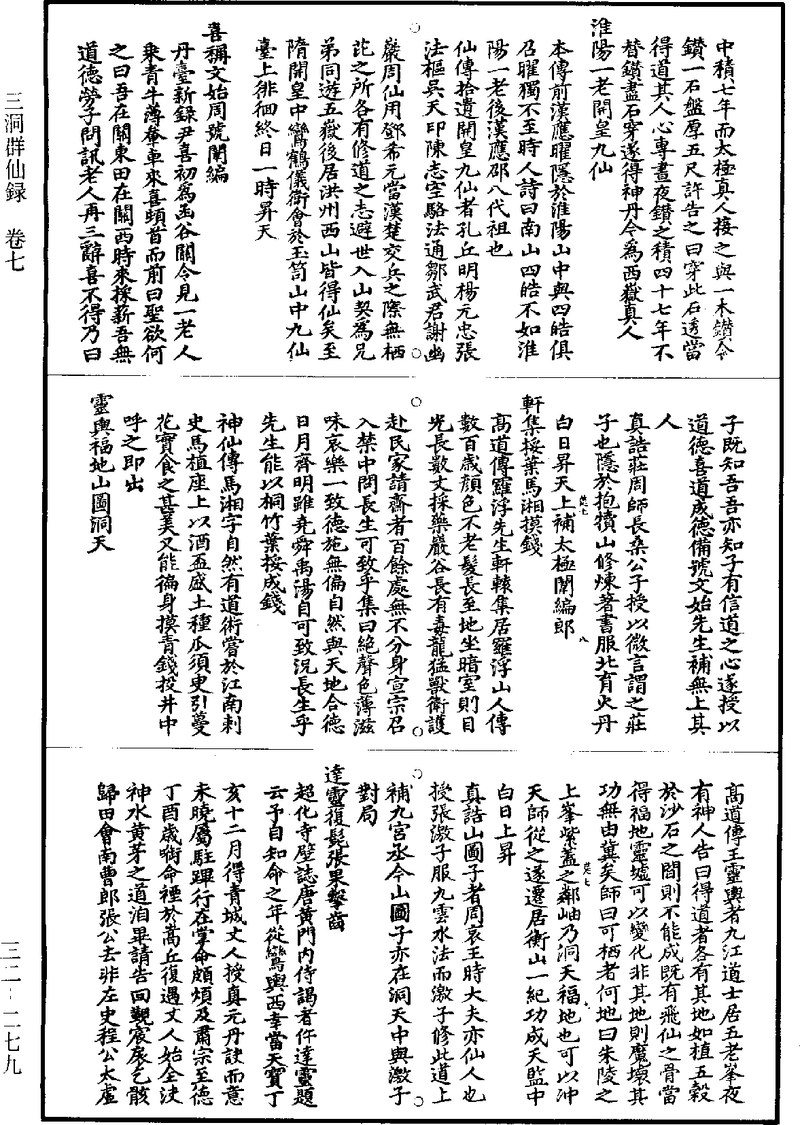 三洞群仙録　卷七
中積七年而太極真人接之與一木鑽令
鑽一石盤厚五尺許告之曰穿此石透當
得道其人心專晝夜鑽之積四十七年不
替鑽盡石穿遂得神丹今為西嶽真人
淮陽一老開皇九仙
本傳前漢應曜隱於淮陽山中與四皓俱
召曜獨不至時人詩曰南山四皓不如淮
陽一老後漢應邵八代祖也
仙傳拾遺開皇九仙者孔丘明楊元忠張
法樞吳天印陳志空駱法通鄒武君謝幽
巖周仙用鄧希元當漢楚交兵之際無栖
託之所各有修道之志避世入山契為兄
弟同遊五嶽後居洪州西山皆得仙矣至
隋開皇中鸞鶴儀衛會於玉笥山中九仙
臺上徘徊終日一時昇天
喜稱文始周號闈編
丹臺新録尹喜初為函谷關令見一老人
乘青牛薄軬車來喜頓首而前曰聖欲何
之曰吾在關東田在關西時來採薪吾無
道德勞子問訊老人再三辭喜不得乃曰
子既知吾吾亦知子有信道之心遂授以
道德喜道成德備號文始先生補無上真
人
真誥莊周師長桑公子授以微言謂之莊
子也隱於抱犢山修煉著書服北育火丹
白日昇天上補太極闈編郎
軒集挼葉馬湘摸錢
高道傳羅浮先生軒轅集居羅浮山人傳
數百歲顏色不老髮長至地坐暗室則目
光長數丈採藥巖谷長有毒龍猛獸衛護
赴民家請齋者百餘處無不分身宣宗召
入禁中問長生可致乎集曰絕聲色薄滋
味哀樂一致德施無偏自然與天地合德
日月齊明雖堯舜禹湯自可致況長生乎
先生能以桐竹葉挼成錢
神仙傳馬湘字自然有道術嘗於江南刺
史馬植座上以酒盃盛土種瓜須臾引蔓
花實食之甚美又能徧身摸青錢投井中
呼之即出
靈輿福地山圖洞天
高道傳王靈輿者九江道士居五老峯夜
有神人告曰得道者各有其地如植五穀
於沙石之間則不能成既有飛仙之骨當
得福地靈墟可以變化非其地則魔壞其
功無由冀矣師曰可栖者何地曰朱陵之
上峯紫蓋之鄰岫乃洞天福地也可以沖
天師從之遂遷居衡山一紀功成天監中
白日上昇
真誥山圖子者周哀王時大夫亦仙人也
授張激子服九雲水法而激子修此道上
補九宮丞今山圖子亦在洞天中與激子
對局
達靈復髭張果擊齒
超化寺壁誌唐黃門內侍謁者仵達靈題
云予自知命之年從鸞輿西幸當天寶丁
亥十二月得青城丈人授真元丹訣而意
未曉屬駐蹕行在掌命頗煩及肅宗至德
丁酉歲銜命禋於嵩丘復遇丈人始全決
神水黃芽之道洎畢請告回觀宸扆乞骸
歸田會南曹郎張公去非左史程公太虛
三二－二七九